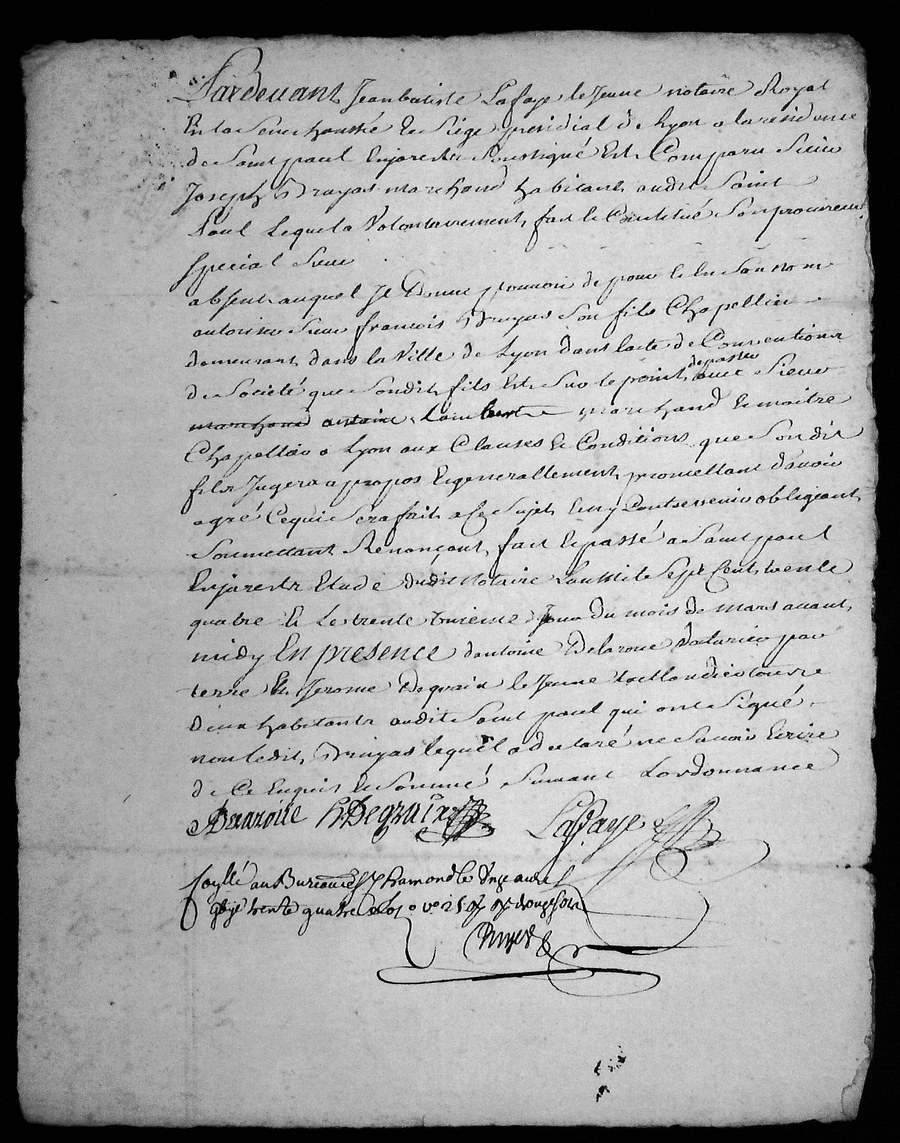 Pardevant Jeanbatiste Lafaye le Jeune notaire Royal
En la Senechaussée et Siége presidial de Lyon a la residence
de Saint paul Enjarestz Soussigné Est Comparu Sieur
Joseph Bruyas marchand habitant audit Saint
Paul Lequel a Volontairement fait et Constitué Son procureur
special Sieur
absent auquel Il Donne pouvoir de pour et En Son nom
autoriser Sieur francois Bruyas Son fils Chapellier
demeurant dans la Ville de Lyon dans lacte de Conventions
de Societé que Sondit fils Est Sur le point de passer avec Sieur
marchand antoine Lambert marchand et maitre
Chapellier a Lyon aux Clauses et Conditions que Son dit
fils Jugera a propos Et generallement promettant davoir
agré Cequi Sera fait a Ce Sujet Et ny Contrevenir obligeant
Soumettant Renonçant, fait Et passé a Saint paul
Enjarestz Etude dudit notaire Lan mil Sept Cent trente
quatre et Le trente unieme Jour du mois de mars avant
midy En presence dantoine Delaroue Voiturier par
terre Et Jerome Degraix le Jeune taillandier tous
deux habitants audit Saint paul qui ont Signé
non ledit Bruyas lequel a declaré ne Savoir Ecrire
de Ce Enquis et Sommé Suivant Lordonnance
Degraix Lafaye
au Bureau de St Chamond le Onze avril
trente quatre